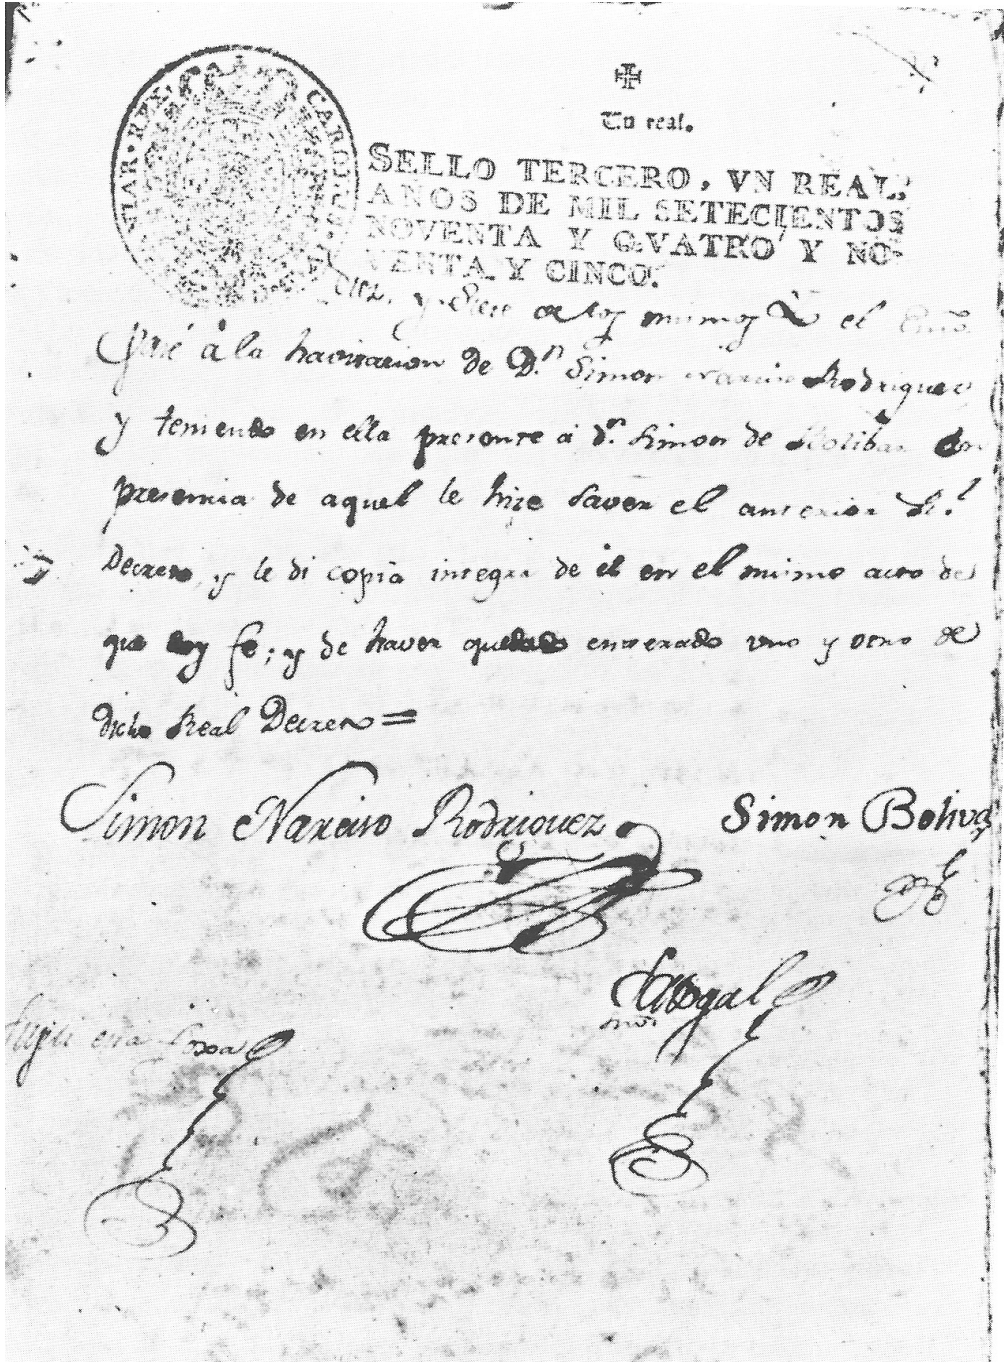 VIAR·REX· CAROLUS
Un real.
SELLO TERCERO, VN REAL,
AÑOS DE MIL SETECIENTOS
NOVENTA Y QVATRO, Y NO-
VENTA Y CINCO.
Diez, y Siete de los mismos Yo el
pasé á la havitacion de D.n Simon Narciso Rodriguez
y teniendo en ella presente á d.n Simon de Bolibar en
presencia de aquel le hize saver el anterior R.l
Decreto, y le di copia integra de él en el mismo acto de
que doy fe; y de haver quedado enterado uno y otro de
dicho Real Decreto =
Simon Narciso Rodriguez
Simon Boliva